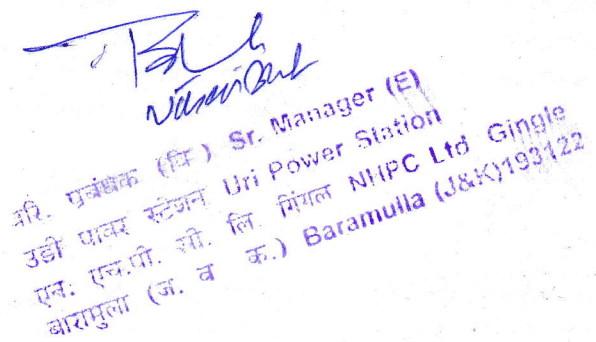 वरि. प्रबंधक (वि) Sr. Manager (E)
उडी पावर स्टेशन Uri Power Station
एन. एच.पी. सी. लि. गिंगल NHPC Ltd Gingle
बारामुला (ज. व क.) Baramulla (J&K)193122